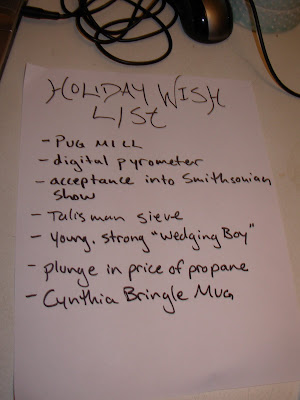 HOLIDAY WISH
LIST
- PUG MILL
- digital pyrometer
- acceptance into Smithsonian
show
- Talisman sieve
- Young, strong "Wedging Boy"
- plunge in price of propane
- Cynthia Bringle Mug